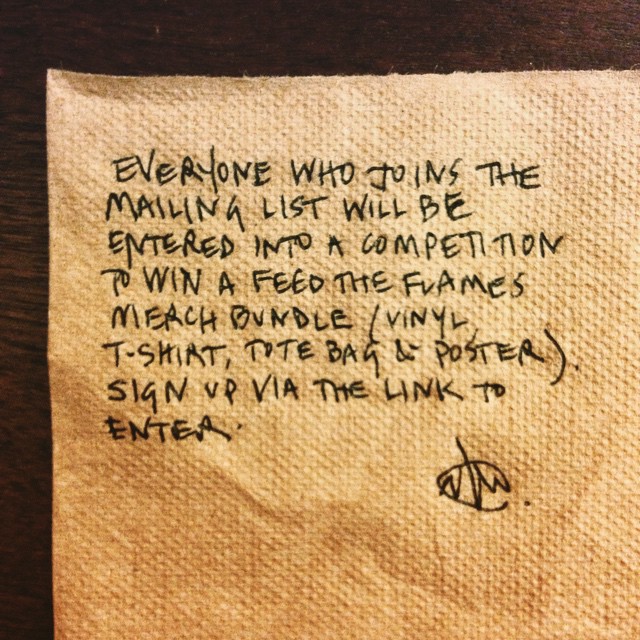 EVERYONE WHO JOINS THE
MAILING LIST WILL BE
ENTERED INTO A COMPETITION
TO WIN A FEED THE FLAMES
MERCH BUNDLE (VINYL,
T-SHIRT, TOTE BAG & POSTER).
SIGN UP VIA THE LINK TO
ENTER.